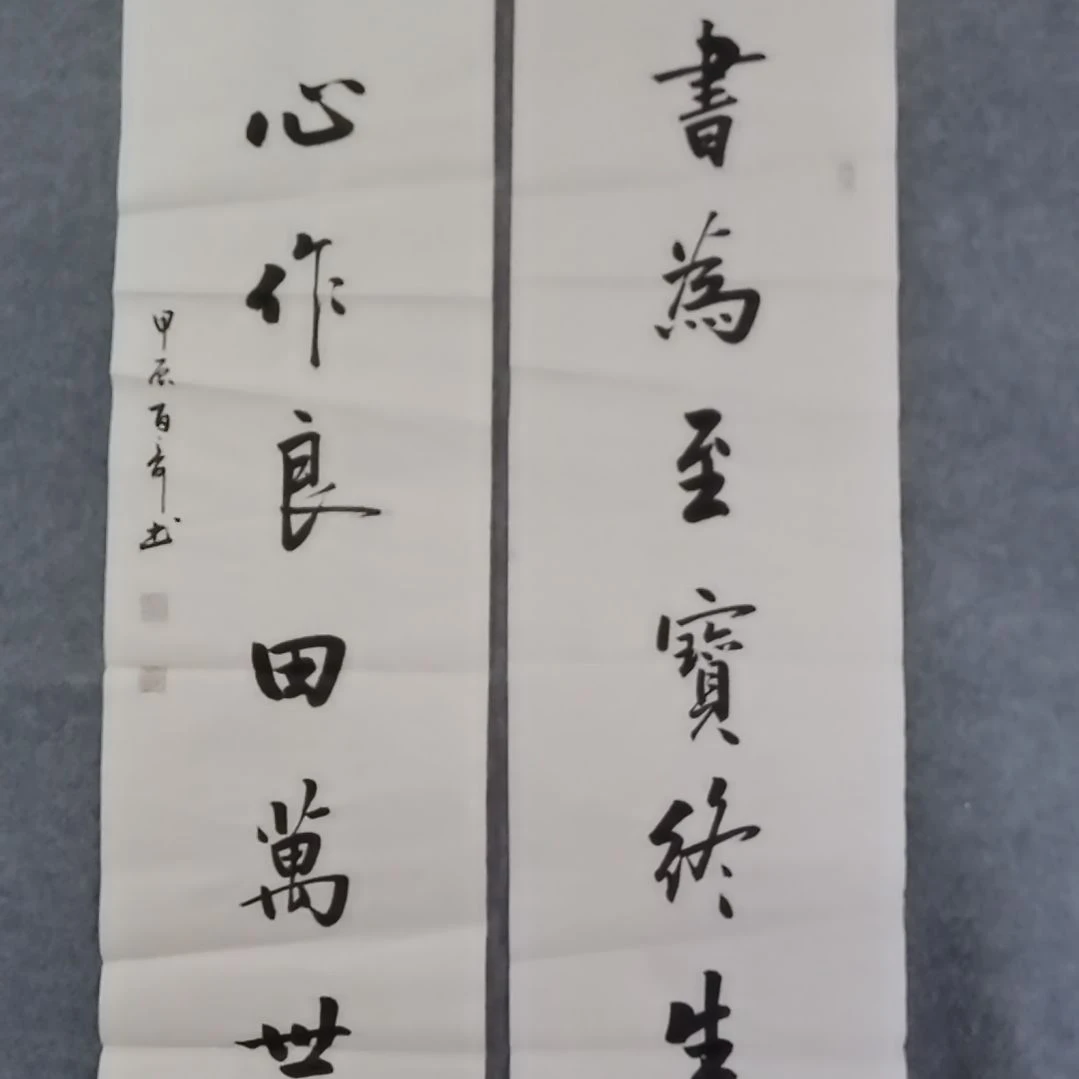 書為至寶終生
心作良田萬世
甲辰百奇书